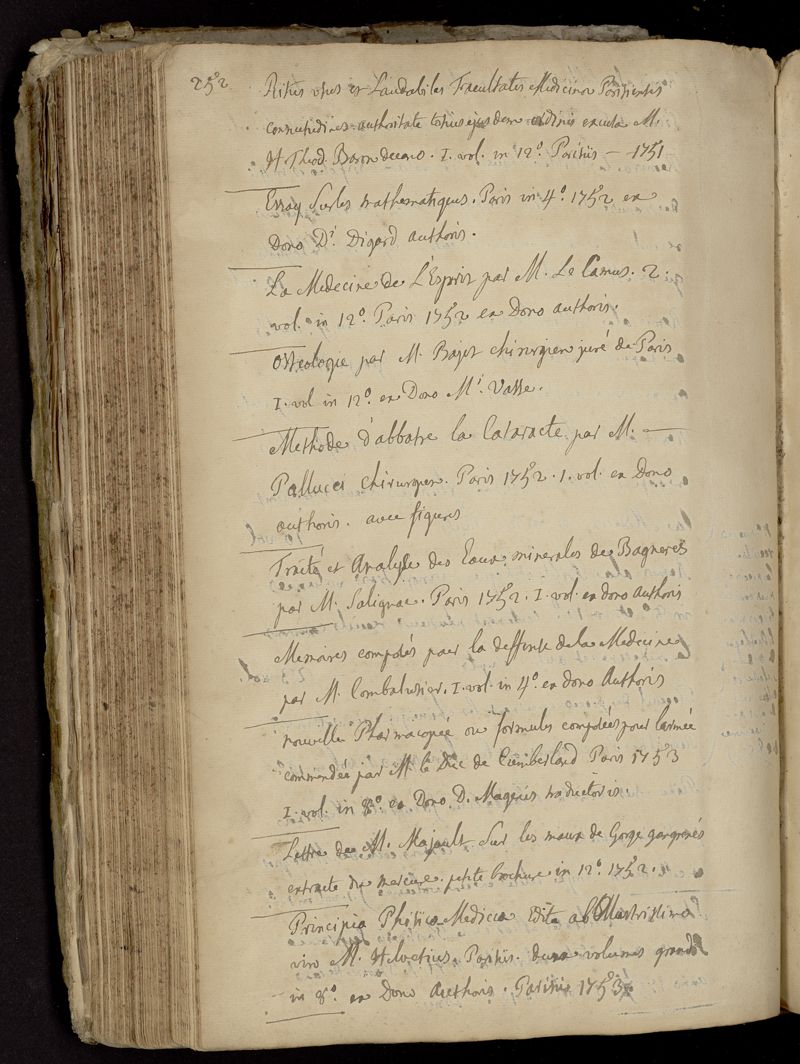 252
Ritus usus et Laudabiles Facultatis Medicinæ Parisiensis
consuetudines authoritate totius ejusdem ordinis excusæ M.
H. Theod. Baron decano. I. vol. in 12º. Parisiis — 1751
Essay sur les mathematiques. Paris in 4º. 1752 ex
Dono Dⁱ. Digard authoris.
La Medecine de L'Esprit par M. Le Camus. 2.
vol. in 12º. Paris 1752 ex Dono authoris.
Osteologie par M. Bajet chirurgien juré de Paris
I. vol in 12º. ex Dono Mⁱ. Vasse.
Methode d'abbatre la Cataracte par M. —
Pallucci chirurgien. Paris 1752. I. vol. ex Dono
authoris. avec figures
Traité et Analyse des Eaux minerales de Bagneres
par M. Salignac. Paris 1752. I. vol. ex dono Authoris
Memoires composés pour la deffense de la Medecine
par M. Combalusier. I. vol. in 4º. ex dono Authoris
nouvelle Pharmacopée ou formules composées pour l'armée
commandée par M. le Duc de Cumberland Paris 1753
I. vol. in 8º. ex Dono D. Magenis traductoris.
Lettre de M. Majault sur les maux de Gorge gangrenés
extraite du mercure. petite brochure in 12º. 1752.
Principia Phisico Medica Edita ab Illustrissimo
viro M. Helvetius. Parisiis. duæ volumes grands
in 8º. ex Dono Authoris. Parisiis 1753.